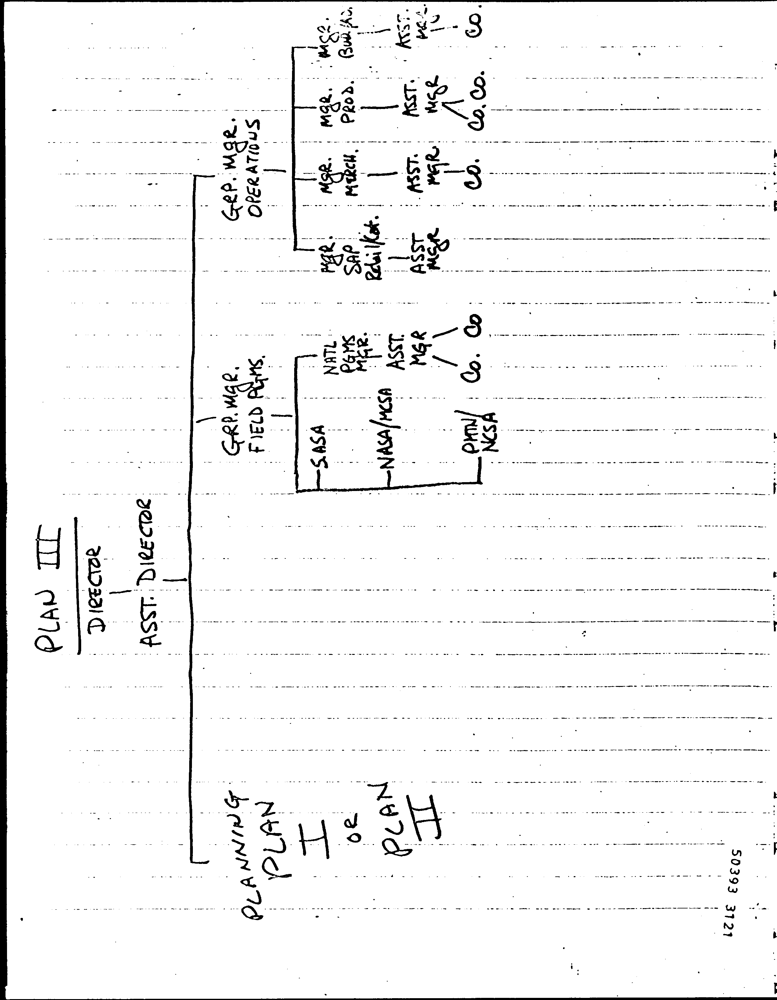 PLAN III
DIRECTOR
ASST. DIRECTOR
PLANNING
PLAN
I
OR
PLAN
II
GRP. MGR.
FIELD PGMS.
SASA
NASA/MCSA
PMTN/
NCSA
NATL
PGMS
MGR.
ASST.
MGR
Co. Co
GRP. MGR.
OPERATIONS
MGR.
SAP
ASST
MGR
MGR.
MERCH.
ASST.
MGR
Co.
MGR.
PROD.
ASST.
MGR
Co. Co.
MGR.
ASST.
MGR.
Co.
50393 3121